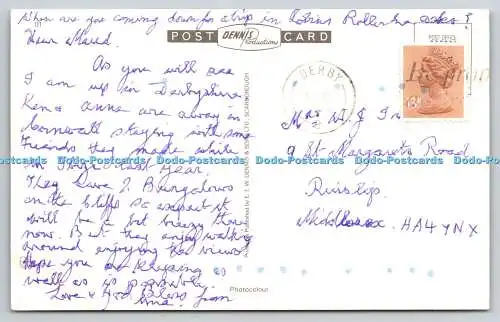 When are you coming down for a trip in Robins Rollerha
POST DENNIS CARD
Productions
Dear Maud.
As you will see
I am up in Derbyshire
Ken & Anne are away in
Cornwall staying with some
Friends they made while
in last year.
They have 2 Bungalows
on the cliffs so expect it
will be a bit breezy there
now. But they enjoy walking
around enjoying the views
Hope you are keeping
well as is possible.
Love & God Bless
from
DERBY
13P
Mrs W J
9 St Margarets Road
Ruislip
Middlesex. HA4 4NX
Published by E. T. W. DENNIS & SONS LTD., SCARBOROUGH
Photocolour
Dodo-Postcards Dodo-Postcards Dodo-Postcards Dodo-Postcards Dodo-Postcards